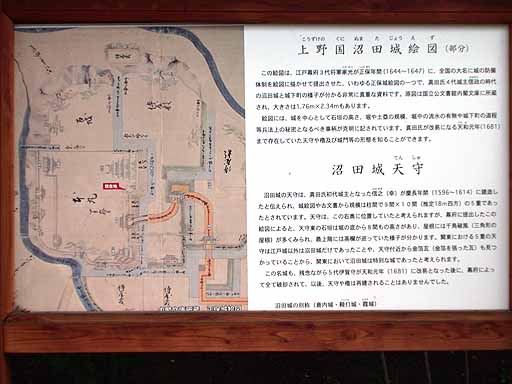 こうずけの くに ぬま た じょう え ず
上野国沼田城絵図(部分)
この絵図は、江戸幕府3代将軍家光が正保年間(1644〜1647)に、全国の大名に城の防備
体制を絵図に描かせて提出させた、いわゆる正保城絵図の一つで、真田氏4代城主信政の時代
の沼田城と城下町の様子が分かる非常に貴重な資料です。原図は国立公文書館内閣文庫に所蔵
され、大きさは1.76m×2.34mもあります。
絵図には、城を中心として石垣の高さ、堀や土塁の規模、堀中の流水の有無や城下町の道程
等兵法上の秘密となるべき事柄が克明に記されています。真田氏が改易になる天和元年(1681)
まで存在していた天守や櫓及び城門等の形態を知ることができます。
てん しゅ
沼田城天守
沼田城の天守は、真田氏初代城主となった信之(幸)が慶長年間(1596〜1614)に建造し
たと伝えられ、城絵図や古文書から規模は柱間で9間×10間(推定18m四方)の5重であっ
たとされています。天守は、この右奥に位置していたと考えられますが、幕府に提出したこの
絵図によると、天守東の石垣は堀の底から8間もの高さがあり、屋根には千鳥破風(三角形の
屋根)が多くみられ、最上階には高欄が巡っていた様子が分かります。関東における5重の天
守は江戸城以外は沼田城だけであったことや、天守付近から金箔瓦(金箔を張った瓦)も見つ
かっていることから、関東において沼田城は特別な城であったと考えられます。
この名城も、残念ながら5代伊賀守が天和元年(1681)に改易となった後に、幕府によっ
て全て破却されて、以後、天守や櫓は再建されることはありませんでした。
沼田城の別称(倉内城・鞍打城・霞城)
現在地
本丸